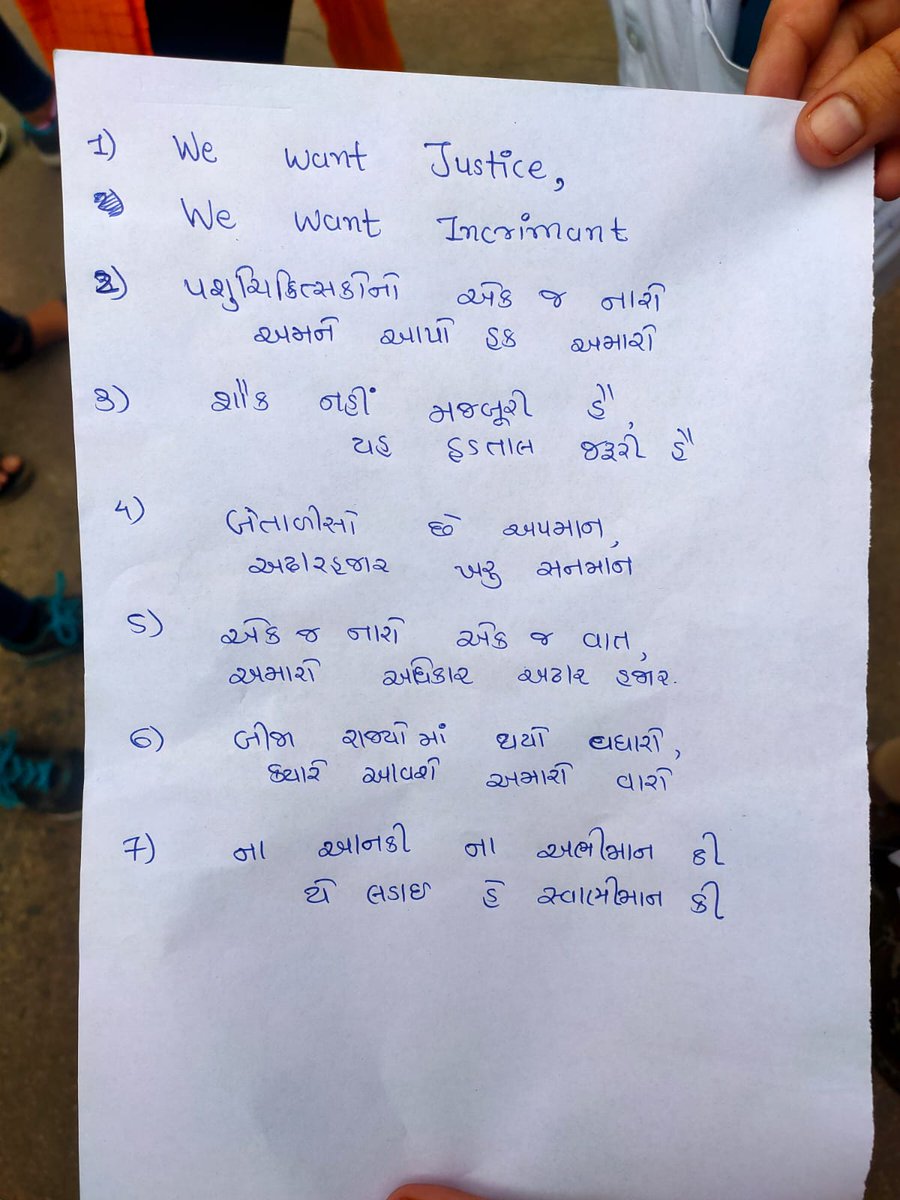 1) We want Justice,
We want Incrimant
2) પશુચિકિત્સકોનો એક જ નારો
અમને આપો હક અમારો
3) શૌક નહીં મજબૂરી હૈ,
યહ હડતાલ જરૂરી હૈ
4) બેતાળીસો છે અપમાન,
અઢારહજાર ખરુ સનમાન
5) એક જ નારો એક જ વાત,
અમારો અધિકાર અઢાર હજાર.
6) બીજા રાજ્યો માં થયો વધારો,
ક્યારે આવશે અમારો વારો
7) ના આનકી ના અભીમાન કી
યે લડાઇ હે સ્વાભીમાન કી